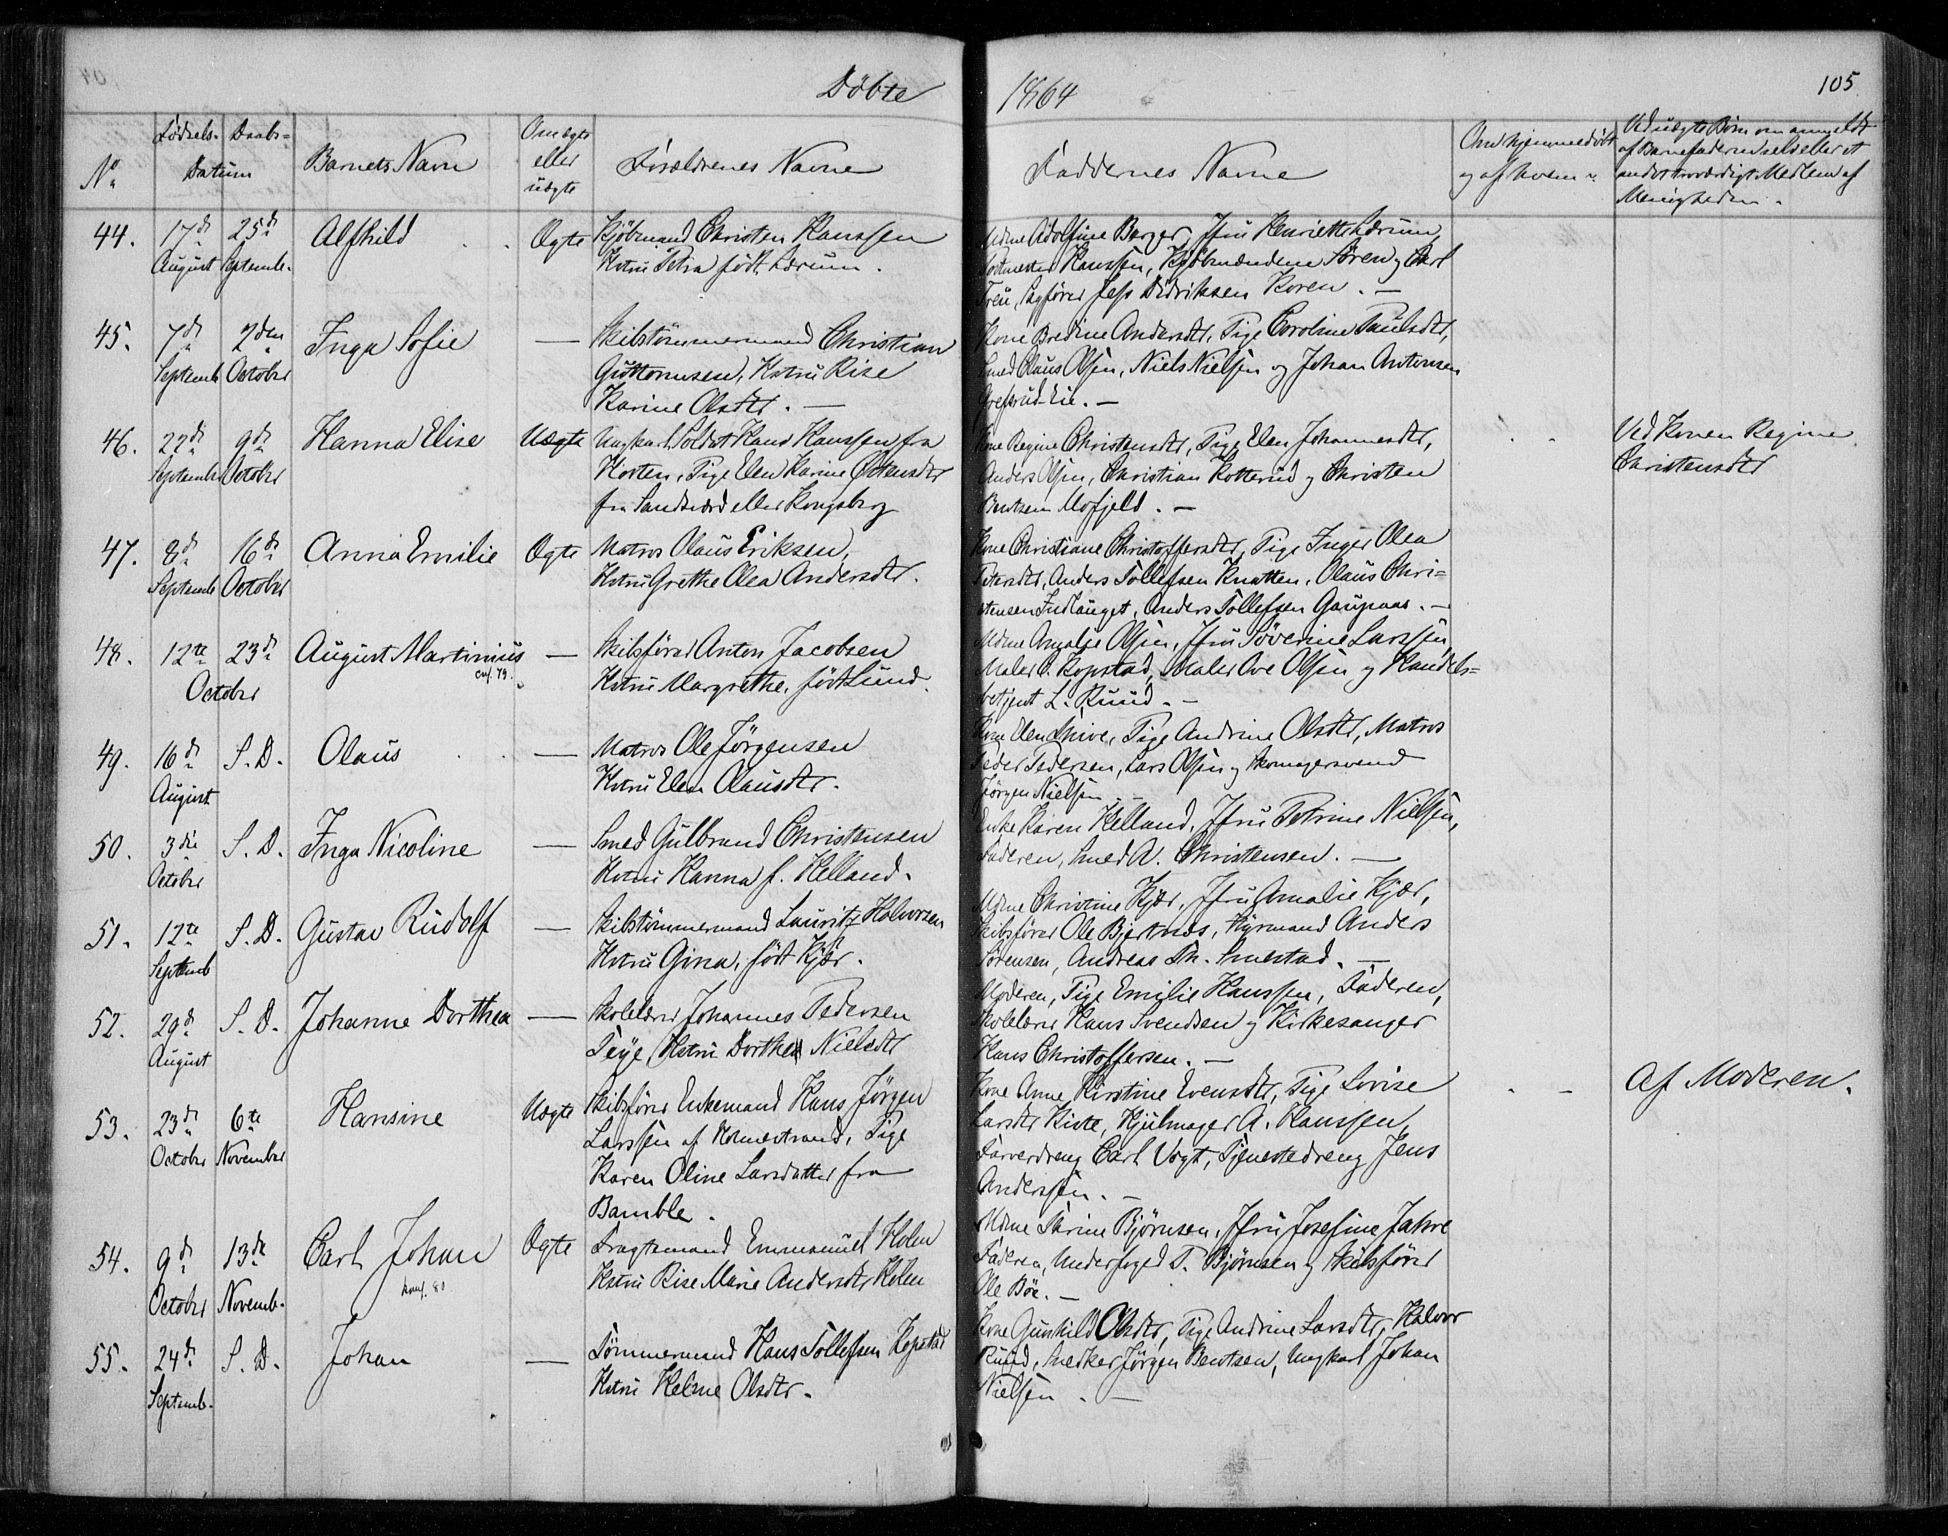 Døbte
1864
105
No
Fødsels-
Daabs-
Datum
Barnets Navn
Om ægte
eller
uægte
Forældrenes Navne
Faddernes Navne
Om hjemmedøbt
og af hvem
Ved uægte Børn om anmeldt
af Barnefaderen selv eller et
andet troværdigt Medlem af
Menigheden.
44. 17de August 25de Septemb. Alfhild Ægte Kjøbmand Christen Hanssen
Hstru Petra født Lærum.
Mdme Adolfine Borger, Jfru Henriette Lærum,
Postmester Hanssen, Kjøbmændene Søren og Carl
Sagfører Jess Didriksen Koren. —
45. 7de Septemb 2den October Inga Sofie — Skibstømmermand Christian
Guttormsen, Hstru Rise
Karine Olsdtr. —
Kone Bredine Andersdtr, Pige Caroline Paulsdtr,
Smed Claus Olsen, Niels Nielsen og Johan Antonsen
Grefsrud-Eie. —
46. 22de September 9de October Hanna Elise Uægte Ungkarl, Soldat Hans Hanssen fra
Horten, Pige Elen Karine Østensdtr
fra Sandsværd eller Kongsberg
Kone Regine Christensdtr, Pige Elen Johannesdtr,
Anders Olsen, Christian Kotterud og Christen
Berntsen Mofjeld. —
Ved Konen Regine
Christensdtr
47. 8de Septemb 16de October Anna Emilie Ægte Matros Olaus Eriksen,
Hstru Grethe Olea Andersdtr.
Kone Christiane Christoffersdtr, Pige Inger Olea
Petersdtr, Anders Tollefsen Knatten, Olaus Chri-
stensen Indlauget, Anders Tollefsen Gaupaas. —
48. 12te 23de October August Martinius — Skibsfører Anton Jacobsen
Conf. 79.
Hstru Margrethe, født Lund.
Mdme Amalie Olsen, Jfru Søverine Larssen,
Maler C. Kopstad, Maler Ove Olsen og Handels-
betjent L. Ruud. —
49. 16de August S. D. Olaus — Matros Ole Jørgensen
Hstru Elen Olausdtr.
Kone Elen Skive, Pige Andrine Olsdtr, Matros
Peder Pedersen, Lars Olsen og Skomagersvend
Jørgen Nielsen
50. 3die October S. D. Inga Nicoline — Smed Gulbrand Christensen
Hstru Hanna f. Helland.
Enke Karen Helland, Jfru Petrine Nielsen,
Faderen, Smed A. Christensen. —
51. 12te Septemb S. D. Gustav Rudolf — Skibstømmermand Lauritz Halvorsen
Hstru Gina, født Kjær.
Mdme Christine Kjær, Jfru Amalie Kjær,
Skibsfører Ole Bjertnæs, Styrmand Anders
Sørensen, Andreas Th. Smestad. —
52. 29de August S. D. Johanne Dorthea — Skolelærer Johannes Pedersen
Teye, Hstru Dorthea Nielsdtr
Moderen, Pige Emilie Hanssen, Faderen,
Skolelærer Hans Svendsen og Kirkesanger
Hans Christoffersen. —
53. 23de October 6te November Hansine Uægte Skibsfører Enkemand Hans Jørgen
Larssen af Holmestrand, Pige
Karen Oline Larsdatter fra
Bamble.
Kone Anne Kirstine Evensdtr, Pige Lovise
Larsdtr Kiste, Hjulmager A. Hanssen,
Farverdreng Carl Vogt, Tjenestedreng Jens
Anderssen. —
Af Moderen.
54. 9de October 13de Novemb. Carl Johan Ægte Fragtemand Emmanuel Holm
Konf. 80
Hstru Rise Marie Andersdtr Holm
Mdme Thrine Bjørnsen, Jfru Josefine Jahre
Faderen, Underfoged T. Bjørnsen og Skibsfører
Ole Bøe. —
55. 24de Septemb. S. D. Johan — Tømmermand Hans Tollefsen Kopstad
Hstru Helene Olsdtr.
Kone Gunhild Olsdtr, Pige Andrine Larsdtr, Halvor
Ruud, Snedker Jørgen Berntsen, Ungkarl Johan
Nielsen. —